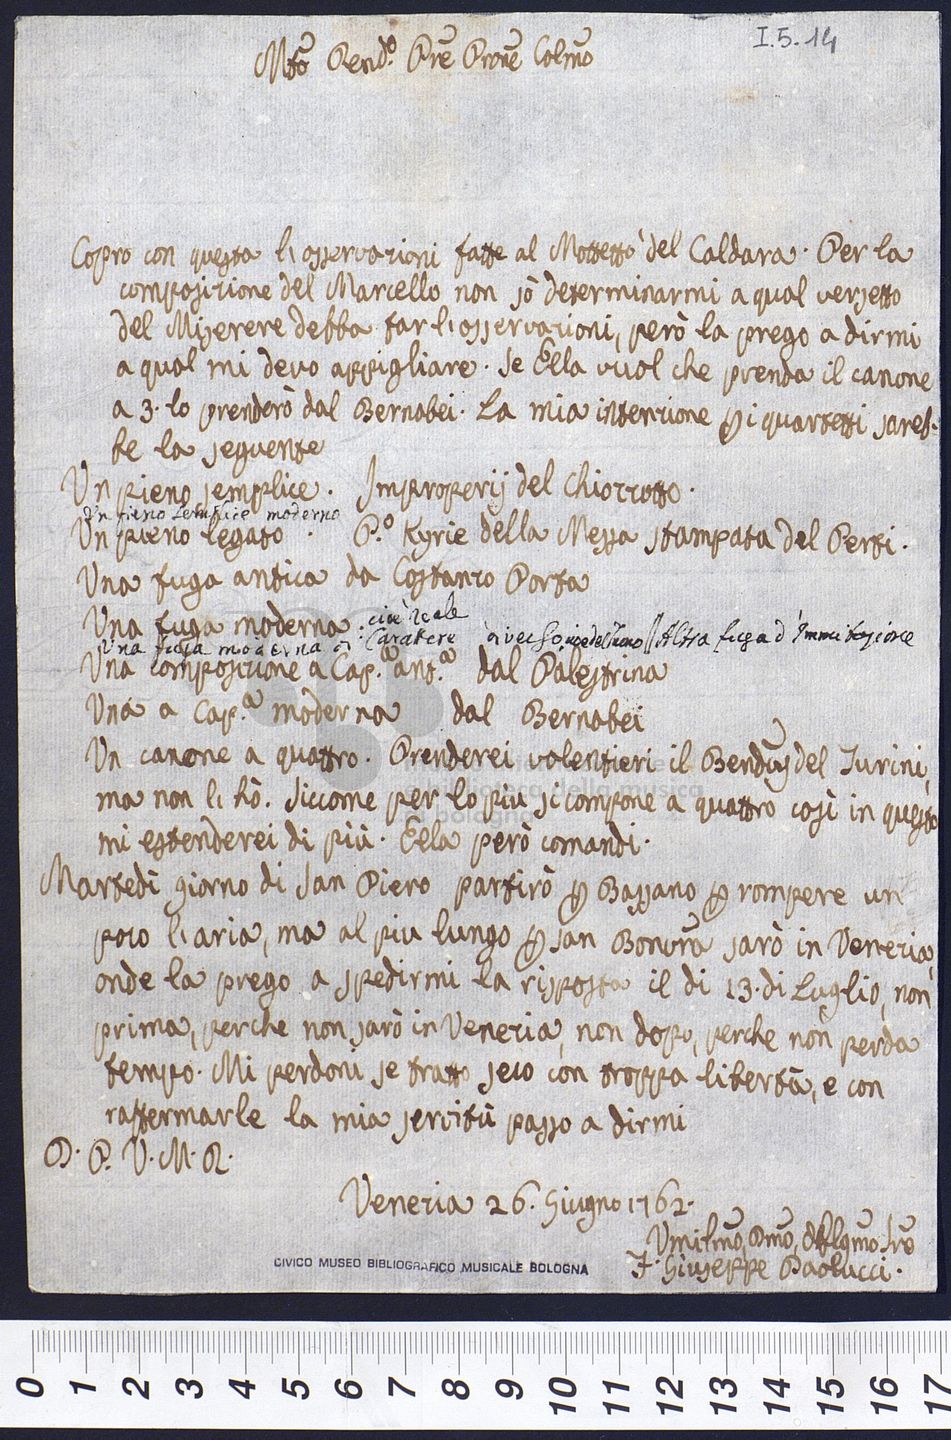 I.5.14
Mto Rendo. Pre Prone Colmo
Copro con questa l'osservazioni fatte al Mottetto del Caldara. Per la
composizione del Marcello non sò determinarmi a qual versetto
del Miserere debba far l'osservazioni, però la prego a dirmi
a qual mi devo appigliare. Se Ella vuol che prenda il canone
a 3. lo prenderò dal Bernabei. La mia intenzione p i quartetti sareb-
be la seguente
Un pieno semplice. Improperij del Chiozzotto.
Un pieno semplice moderno
Un pieno legato. Po. Kyrie della Messa stampata del Perti.
Una fuga antica da Costanzo Porta
Una fuga moderna. cioè reale
Una fuga moderna di Caratere diverso // Altra fuga d'Immitazione
Una composizione a Cap.a ant.a dal Palestrina
Una a Cap.a moderna dal Bernabei
Un canone a quattro. Prenderei volentieri il del Turini,
ma non l'hò. Siccome per lo più si compone a quattro così in questo
mi estenderei di più. Ella però comandi.
Martedì giorno di San Piero partirò p Bassano p rompere un
poco l'aria, ma al piu lungo p San Bonvra sarò in Venezia,
onde la prego a spedirmi la risposta il di 13. di Luglio, non
prima, perche non sarò in Venezia, non dopo, perche non perda
tempo. Mi perdoni se tratto seco con troppa libertà, e con
raffermarle la mia servitù passo a dirmi
D. P. V. M. R.
Venezia 26. Giugno 1762.
Umilmo, Dmo, Sre
F. Giuseppe Paolucci.
CIVICO MUSEO BIBLIOGRAFICO MUSICALE BOLOGNA
museo internazionale
e biblioteca della musica
di bologna
0 1 2 3 4 5 6 7 8 9 10 11 12 13 14 15 16 17